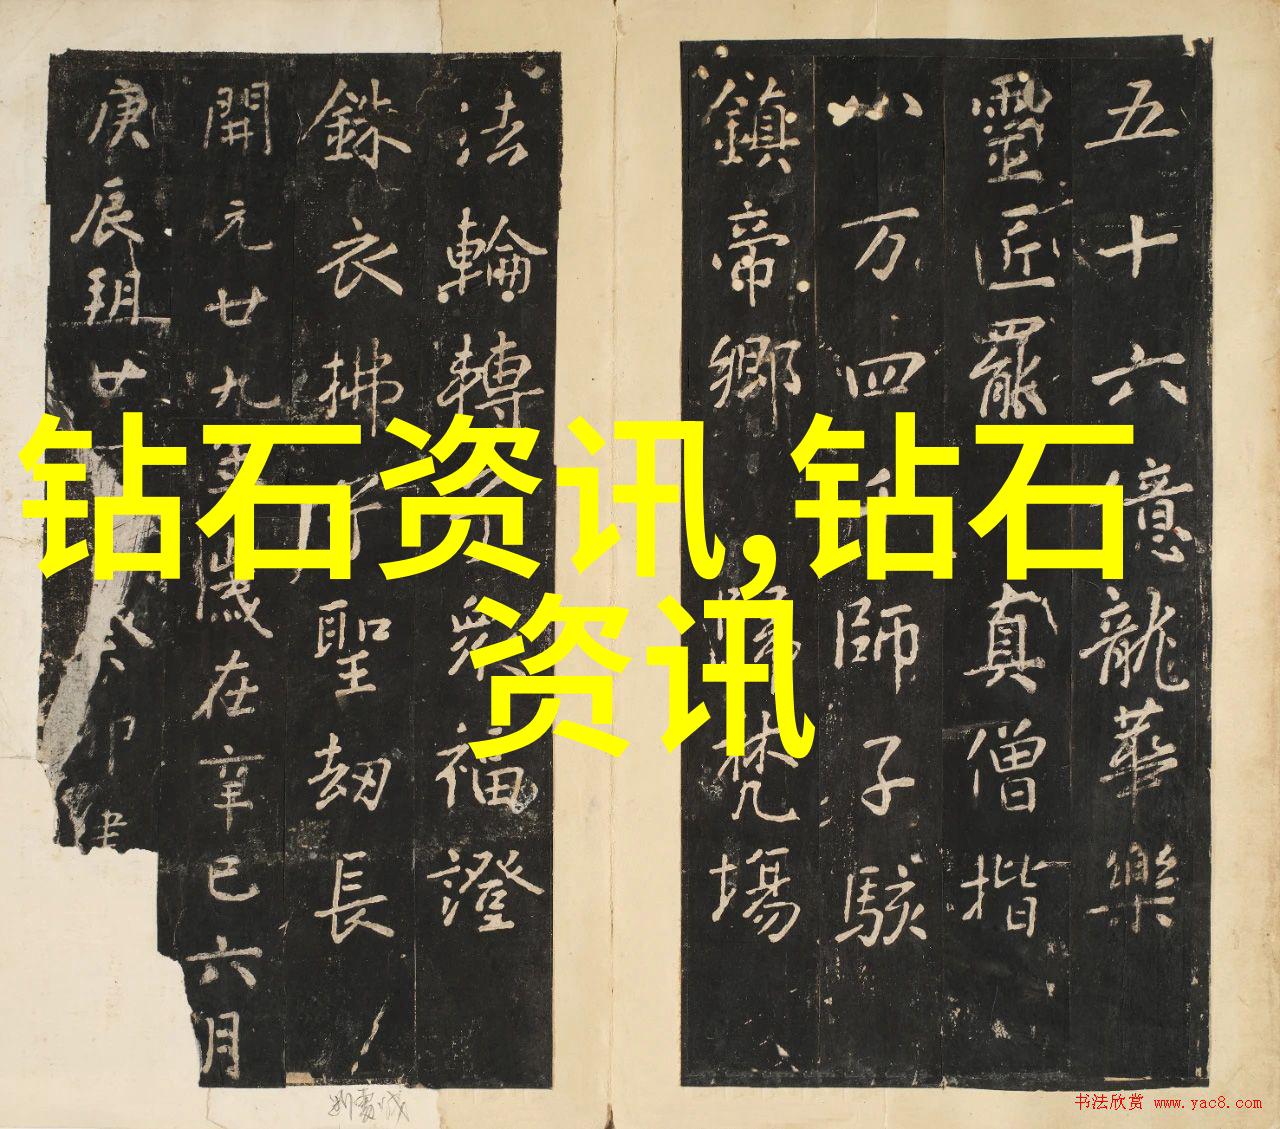 钻石资讯,钻石
资讯
五十六億龍華樂
靈匠罷真僧揩
八万四千師子駭
鎮帝鄉歸梵場
法輪轉兮衆福證
銖衣拂兮聖劫長
開元廿九年歲在辛巳六月
庚辰朔廿癸卯建
书法欣赏 www.yac8.com